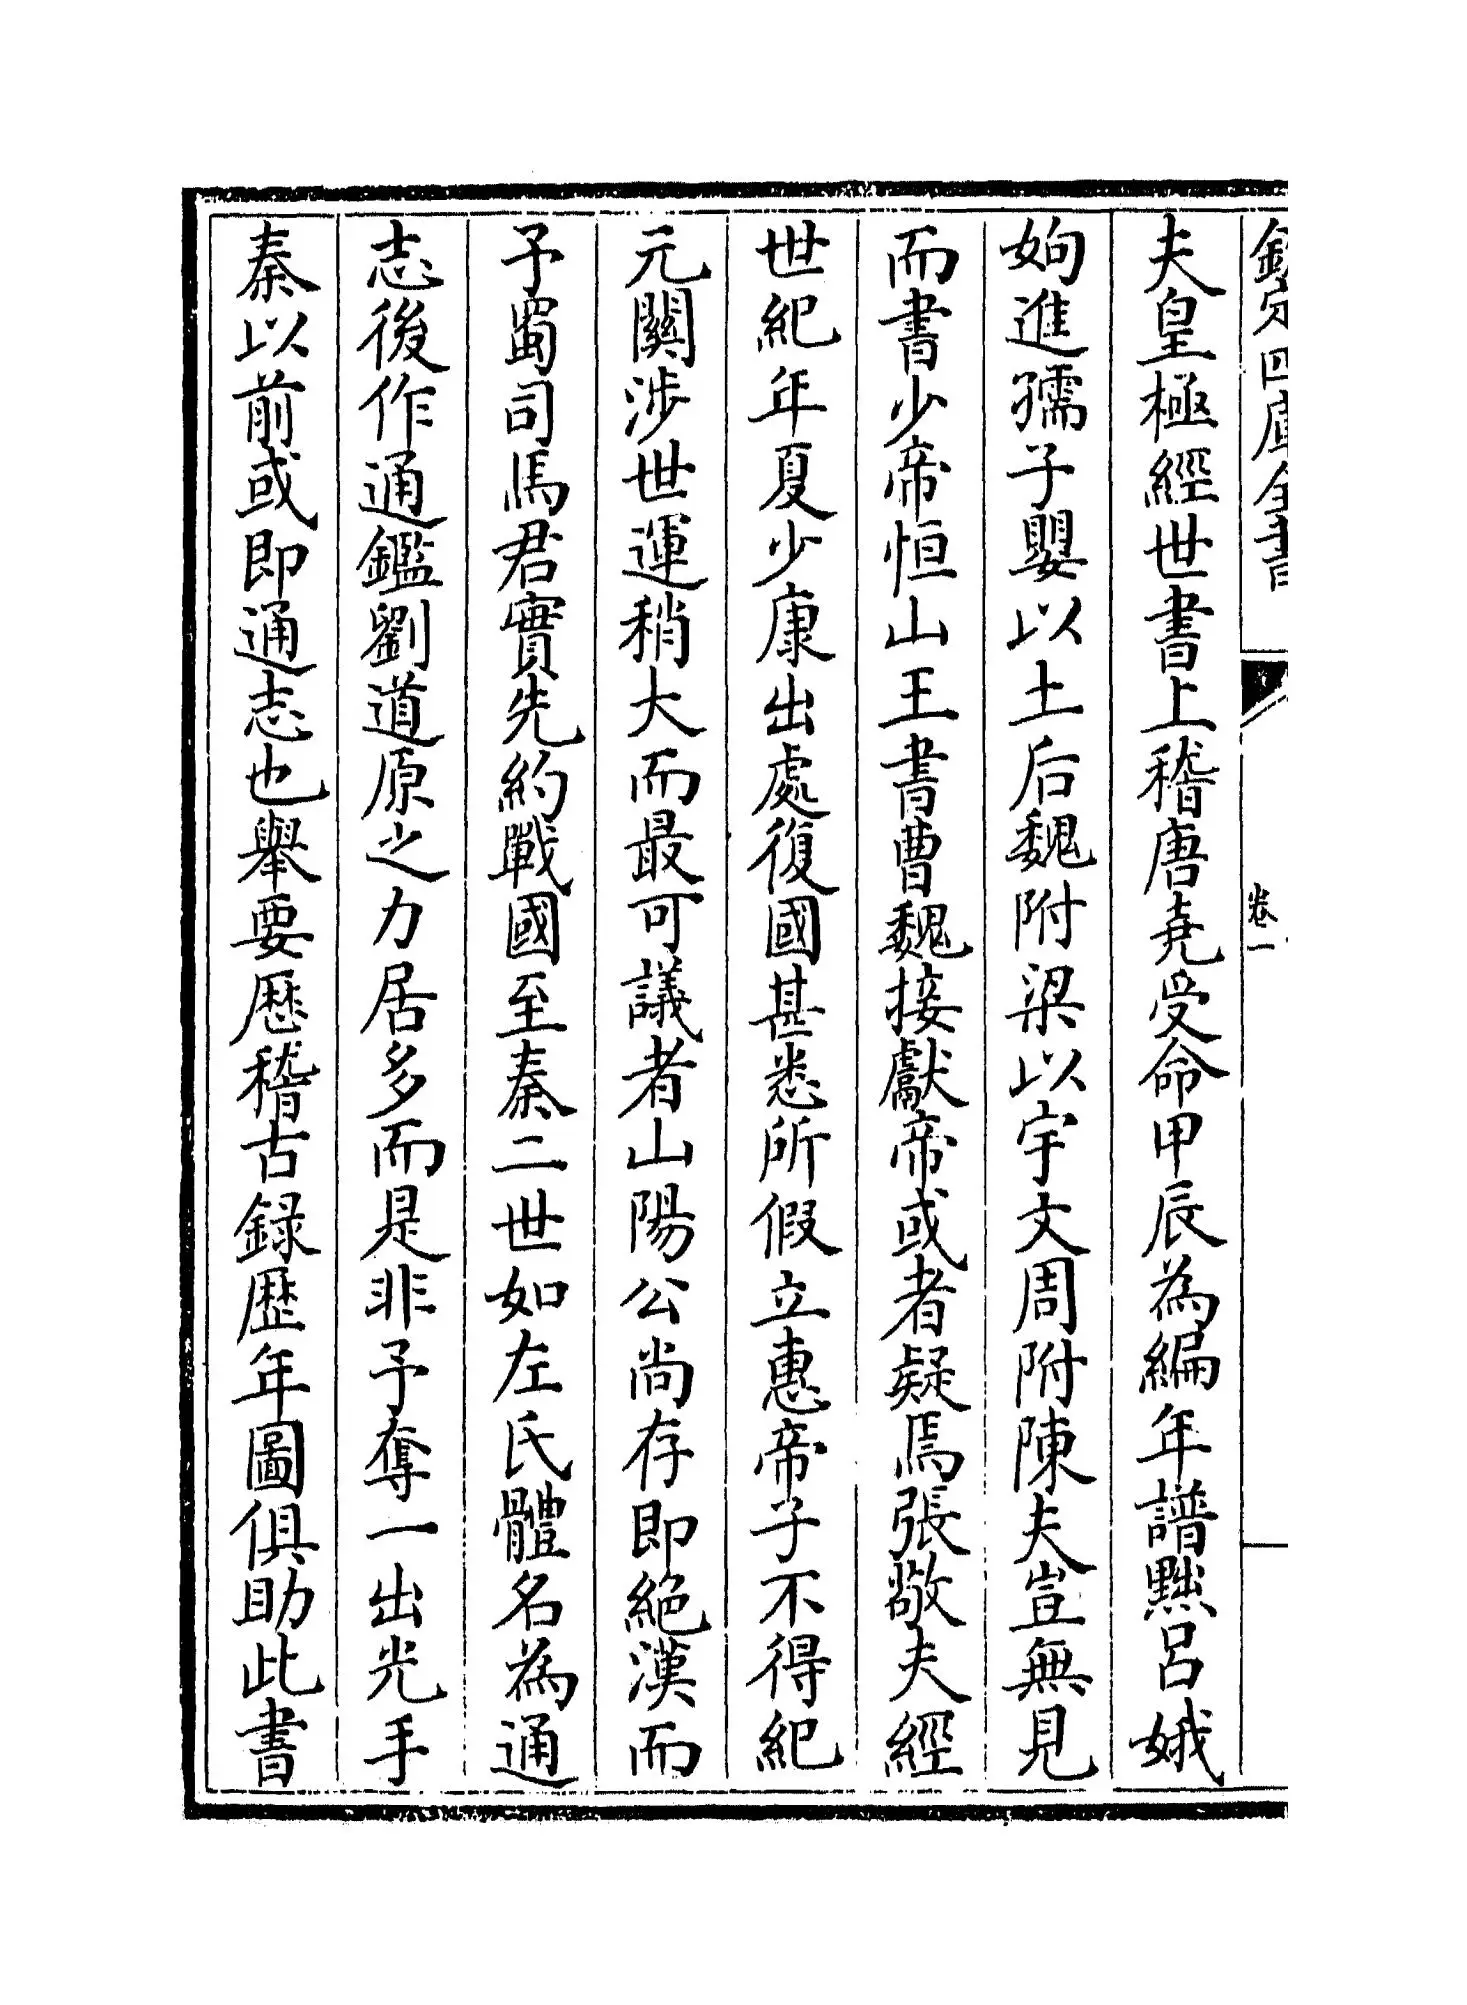 欽定四庫全書
卷一
夫皇極經世書上稽唐堯受命甲辰為編年譜黜呂娥
姁進孺子嬰以土后魏附梁以宇文周附陳夫豈無見
而書少帝恒山王書曹魏接獻帝或者疑焉張敬夫經
世紀年夏少康出處復國甚悉所假立惠帝子不得紀
元關涉世運稍大而最可議者山陽公尚存即絕漢而
予蜀司馬君實先約戰國至秦二世如左氏體名為通
志後作通鑑劉道原之力居多而是非予奪一出光手
秦以前或即通志也舉要歷稽古錄歷年圖俱助此書